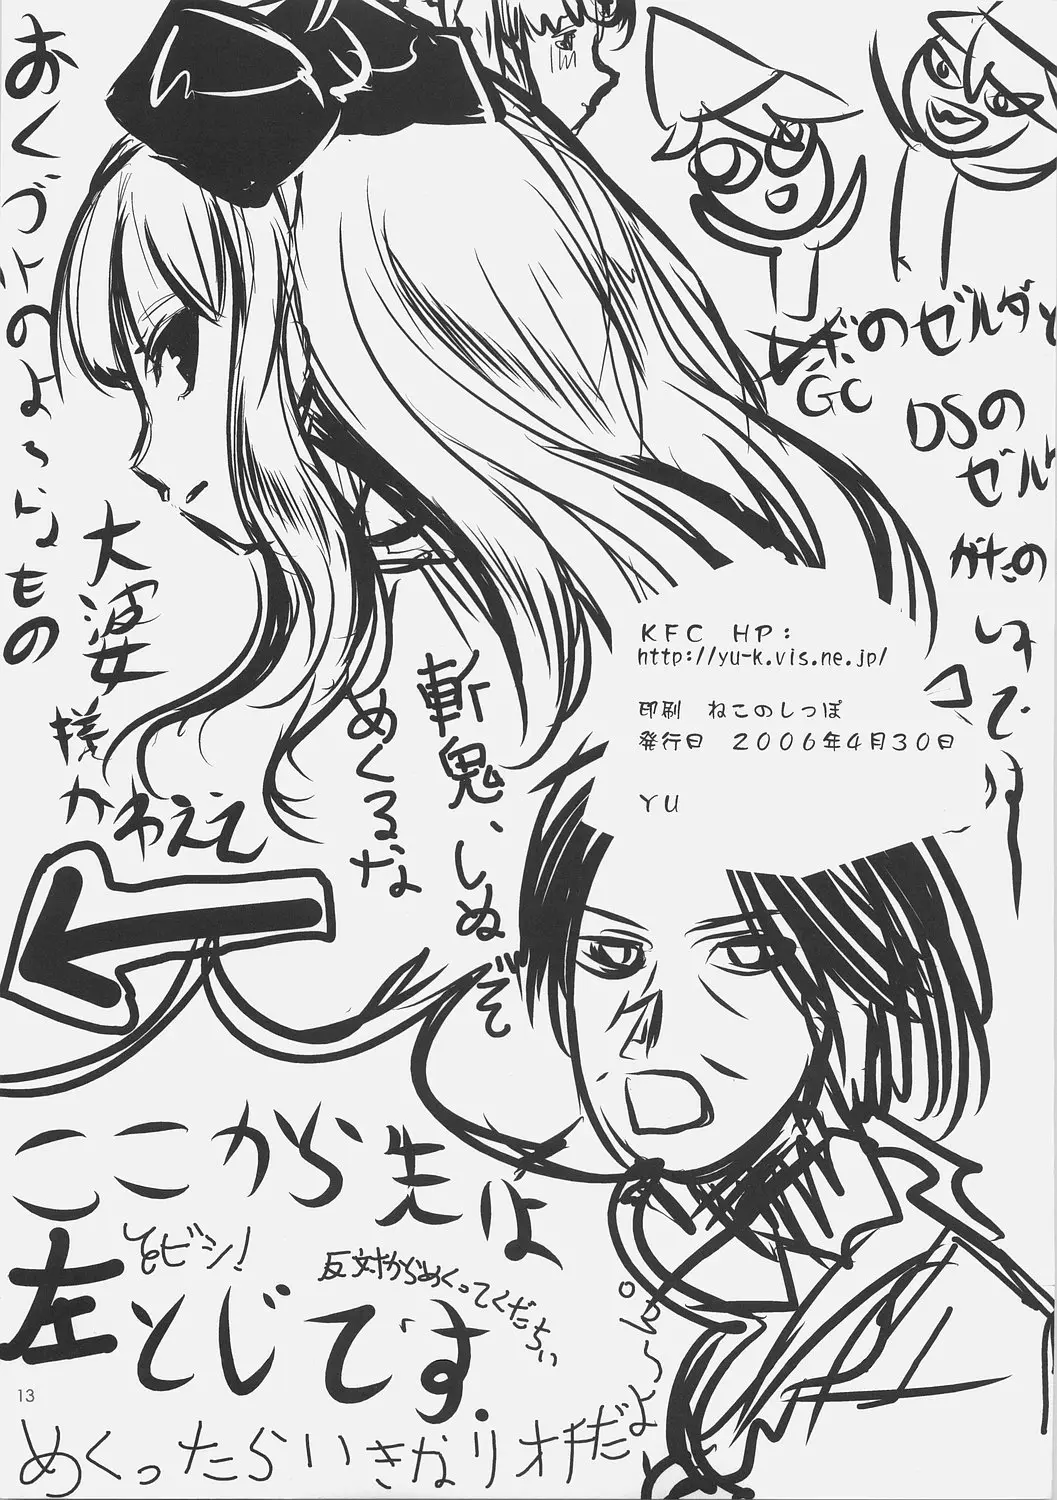 のゼルダと
GC
DSの
ゼル
がたの
しみです
KFC HP:
http://yu-k.vis.ne.jp/
印刷 ねこのしっぽ
発行日 2006年4月30日
YU
斬鬼、しぬぞ
めくるな
大婆
様
かわええ
おくづけのよーなもの
ここから先は
左とじです。
とビシ!
反対からめくってくだちぃ
めくったらいきなりオチだよ
13